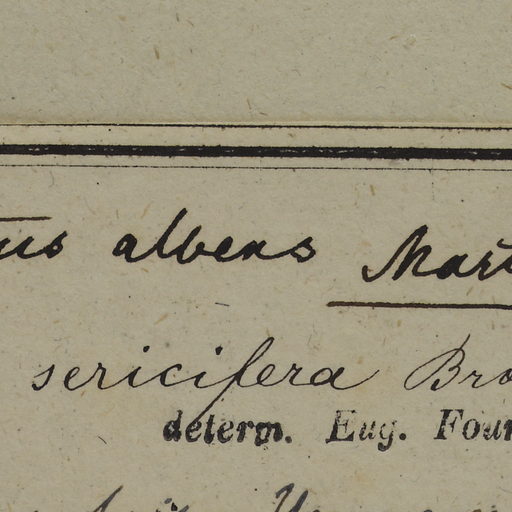 albens Mart
sericifera Bro
determ. Eug. Four